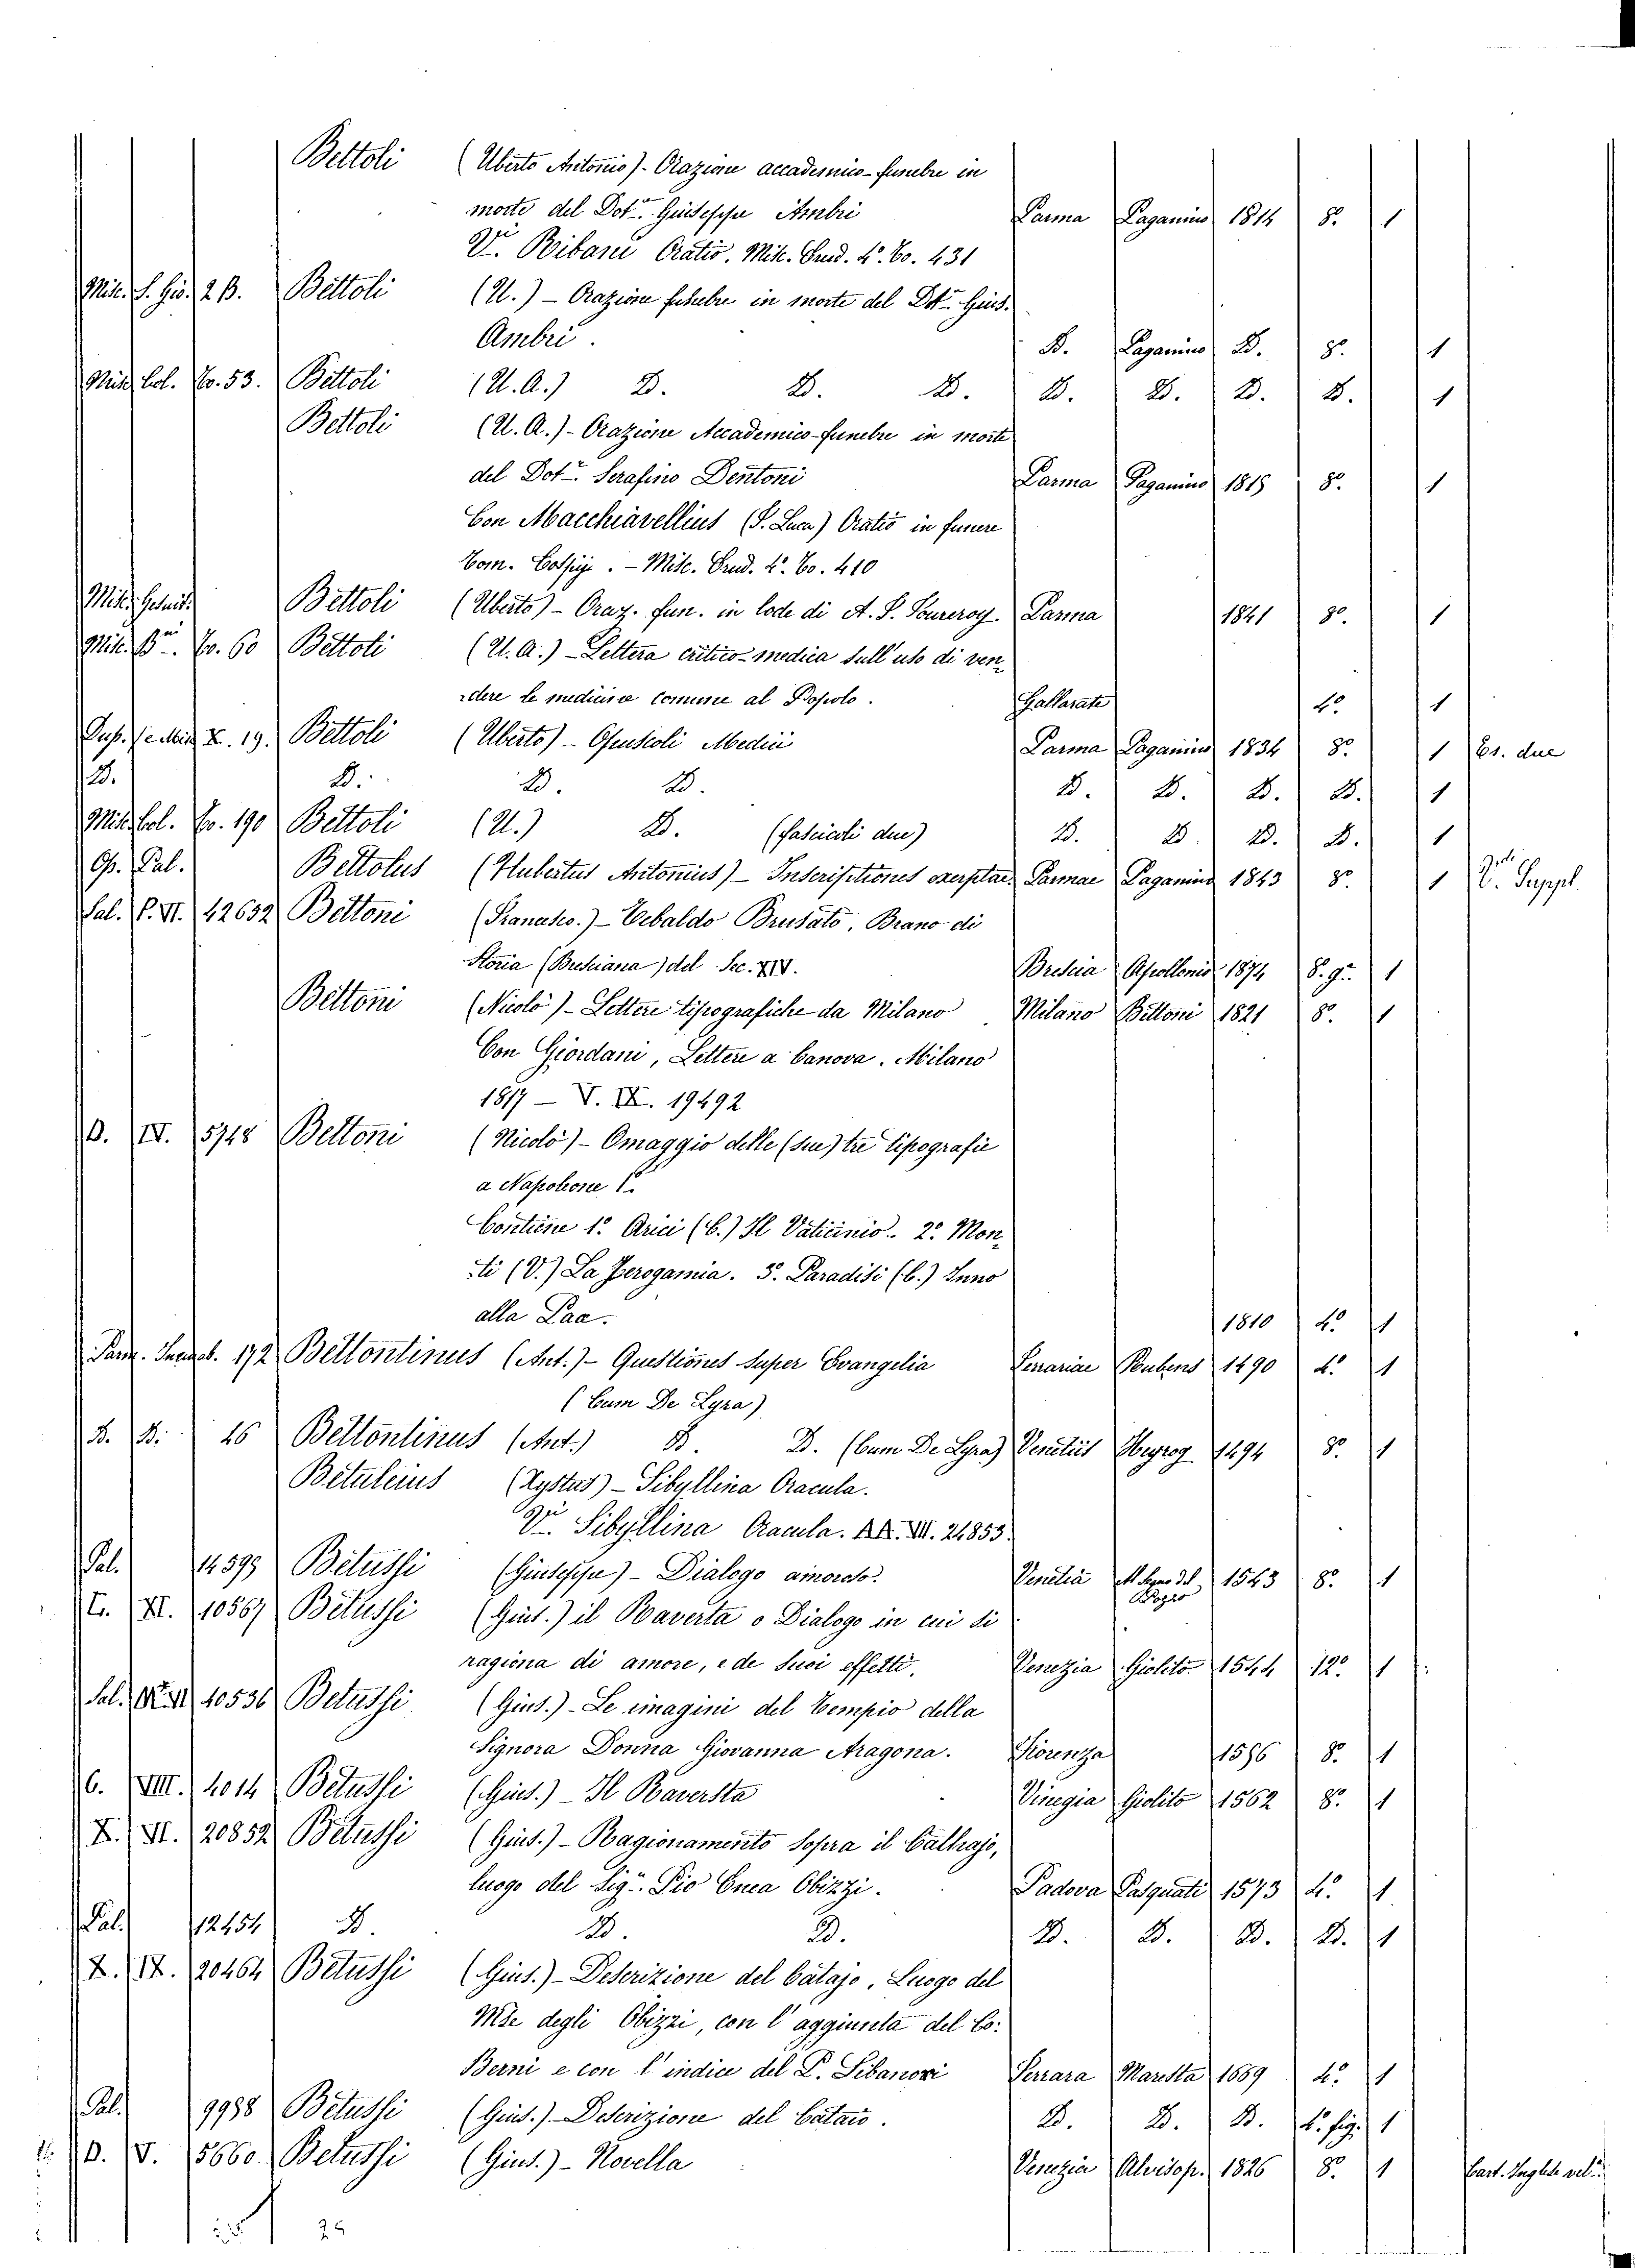 Bettoli (Uberto Antonio) - Orazione accademico-funebre in
morte del Dot.r Giuseppe Ambri Parma Paganino 1814 8.° 1
V. Bibani Oratio. Misc. Erud. 4.° To. 431
Misc. S. Gio. 2 B. Bettoli (U.) - Orazione funebre in morte del Dot.r Gius.
Ambri. D. Paganino D. 8.° 1
Misc. Col. To. 53. Bettoli (U. A.) D. D. D. D. D. D. D. 1
Bettoli (U. A.) - Orazione Accademico-funebre in morte
del Dot.r Serafino Dentoni Parma Paganino 1815 8.° 1
Con Macchiavellius (P. Luca) Oratio in funere
Com. Cospij. - Misc. Erud. 4.° To. 410
Misc. Bettoli (Uberto) - Oraz. fun. in lode di A. F. Foureroy. Parma 1841 8.° 1
Misc. To. 60 Bettoli (U. A.) - Lettera critico-medica sull'uso di ven-
dere le medicine comune al Popolo. Gallarate 4.° 1
X. 19. Bettoli (Uberto) - Opuscoli Medici Parma Paganino 1834 8.° 1 Es. due
D. D. D. D. D. D. D. D. 1
Misc. Col. To. 190 Bettoli (U.) D. (fascicoli due) D. D. D. D. 1
Op. Pal. Bettolus (Hubertus Antonius) - Inscriptiones exerptae. Parmae Paganino 1843 8.° 1 V. Suppl.
Sal. P. VI. 42632 Bettoni (Francesco.) - Tebaldo Brusato, Brano di
Storia (Bresciana) del Sec. XIV. Brescia Apollonio 1874 8.° g.e 1
Bettoni (Nicolò) - Lettere tipografiche da Milano Milano Bettoni 1821 8.° 1
Con Giordani, Lettere a Canova. Milano
1817 - V. IX. 19492
D. IV. 5748 Bettoni (Nicolò) - Omaggio delle (sue) tre tipografie
a Napoleone I.
Contiene 1.° Arici (C.) Il Vaticinio. 2.° Mon-
ti (V.) La Jerogamia. 3.° Paradisi (C.) Inno
alla Paa. 1810 4.° 1
Parm. Incunab. 172 Bettontinus (Ant.) - Questiones super Evangelia Ferrariae Rubens 1490 4.° 1
(Cum De Lyra)
D. D. 46 Bettontinus (Ant.) D. D. (Cum De Lyra) Venetiis 1494 8.° 1
Betuleius (Xystus) - Sibyllina Oracula.
V. Sibyllina Oracula. VII. 24853.
Pal. 14599 Betussi (Giuseppe) - Dialogo amoroso. Venetia Al Segno del Pozzo 1543 8.° 1
XI. 10567 Betussi (Gius.) il Raverta o Dialogo in cui si
ragiona di amore, e de suoi effetti. Venezia Giolito 1544 12.° 1
Sal. 10536 Betussi (Gius.) - Le imagini del Tempio della
Signora Donna Giovanna Aragona. Fiorenza 1556 8.° 1
C. VIII. 4014 Betussi (Gius.) - Il Raverta Vinegia Giolito 1562 8.° 1
X. VI. 20852 Betussi (Gius.) - Ragionamento sopra il Cathajo,
luogo del Sig.r Pio Enea Obizzi. Padova Pasquati 1573 4.° 1
Pal. 12454 D. D. D. D. D. D. D. 1
X. IX. 20464 Betussi (Gius.) - Descrizione del Catajo, Luogo del
Mse degli Obizzi, con l'aggiunta del Co:
Berni e con l'indice del P. Libanori Ferrara Maresta 1669 4.° 1
Pal. 9988 Betussi (Gius.) - Descrizione del Cataio. D. D. D. 4.° fig. 1
D. V. 5660 Betussi (Gius.) - Novella Venezia Alvisop. 1826 8.° 1 Cart. Inglese vel.